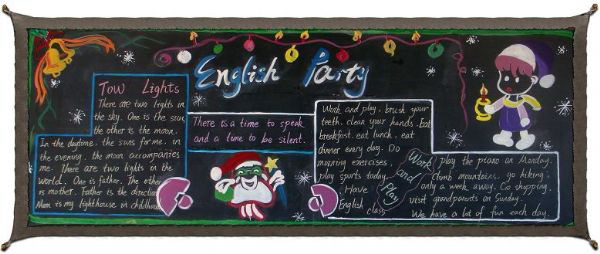 English Party
Tow Lights
There are two lights in
the sky. One is the sun,
the other is the moon.
In the daytime, the suns for me, in
the evening, the moon accompanies
me. There are two lights in the
world. One is father. The other
is mother. Father is the direction
Mom is my lighthouse in childhood
There is a time to speak
and a time to be silent.
Work and play
Work and play, brush your
teeth, clean your hands. Eat
breakfast, eat lunch, eat
dinner every day. Do
morning exercises,
play sports today.
Have
English class
play the piano on Monday.
Climb mountains, go hiking,
only a week away. Go shopping,
visit grandparents on Sunday.
We have a lot of fun each day.